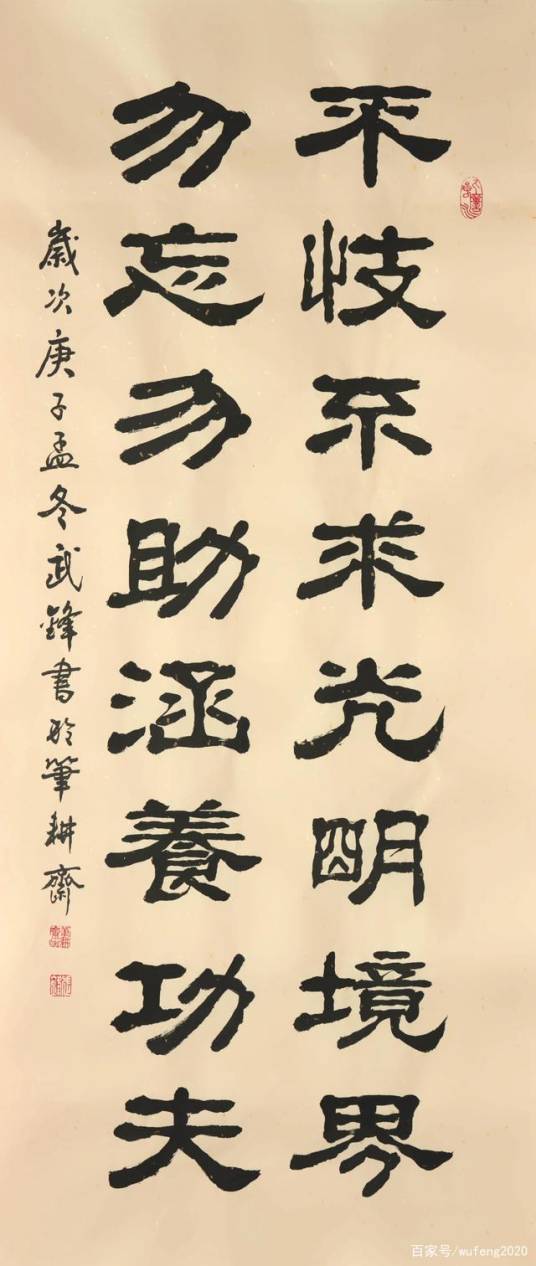 不忮不求光明境界
勿忘勿助涵養功夫
歲次庚子孟冬武鋒書於筆耕齋
百家号/wufeng2020